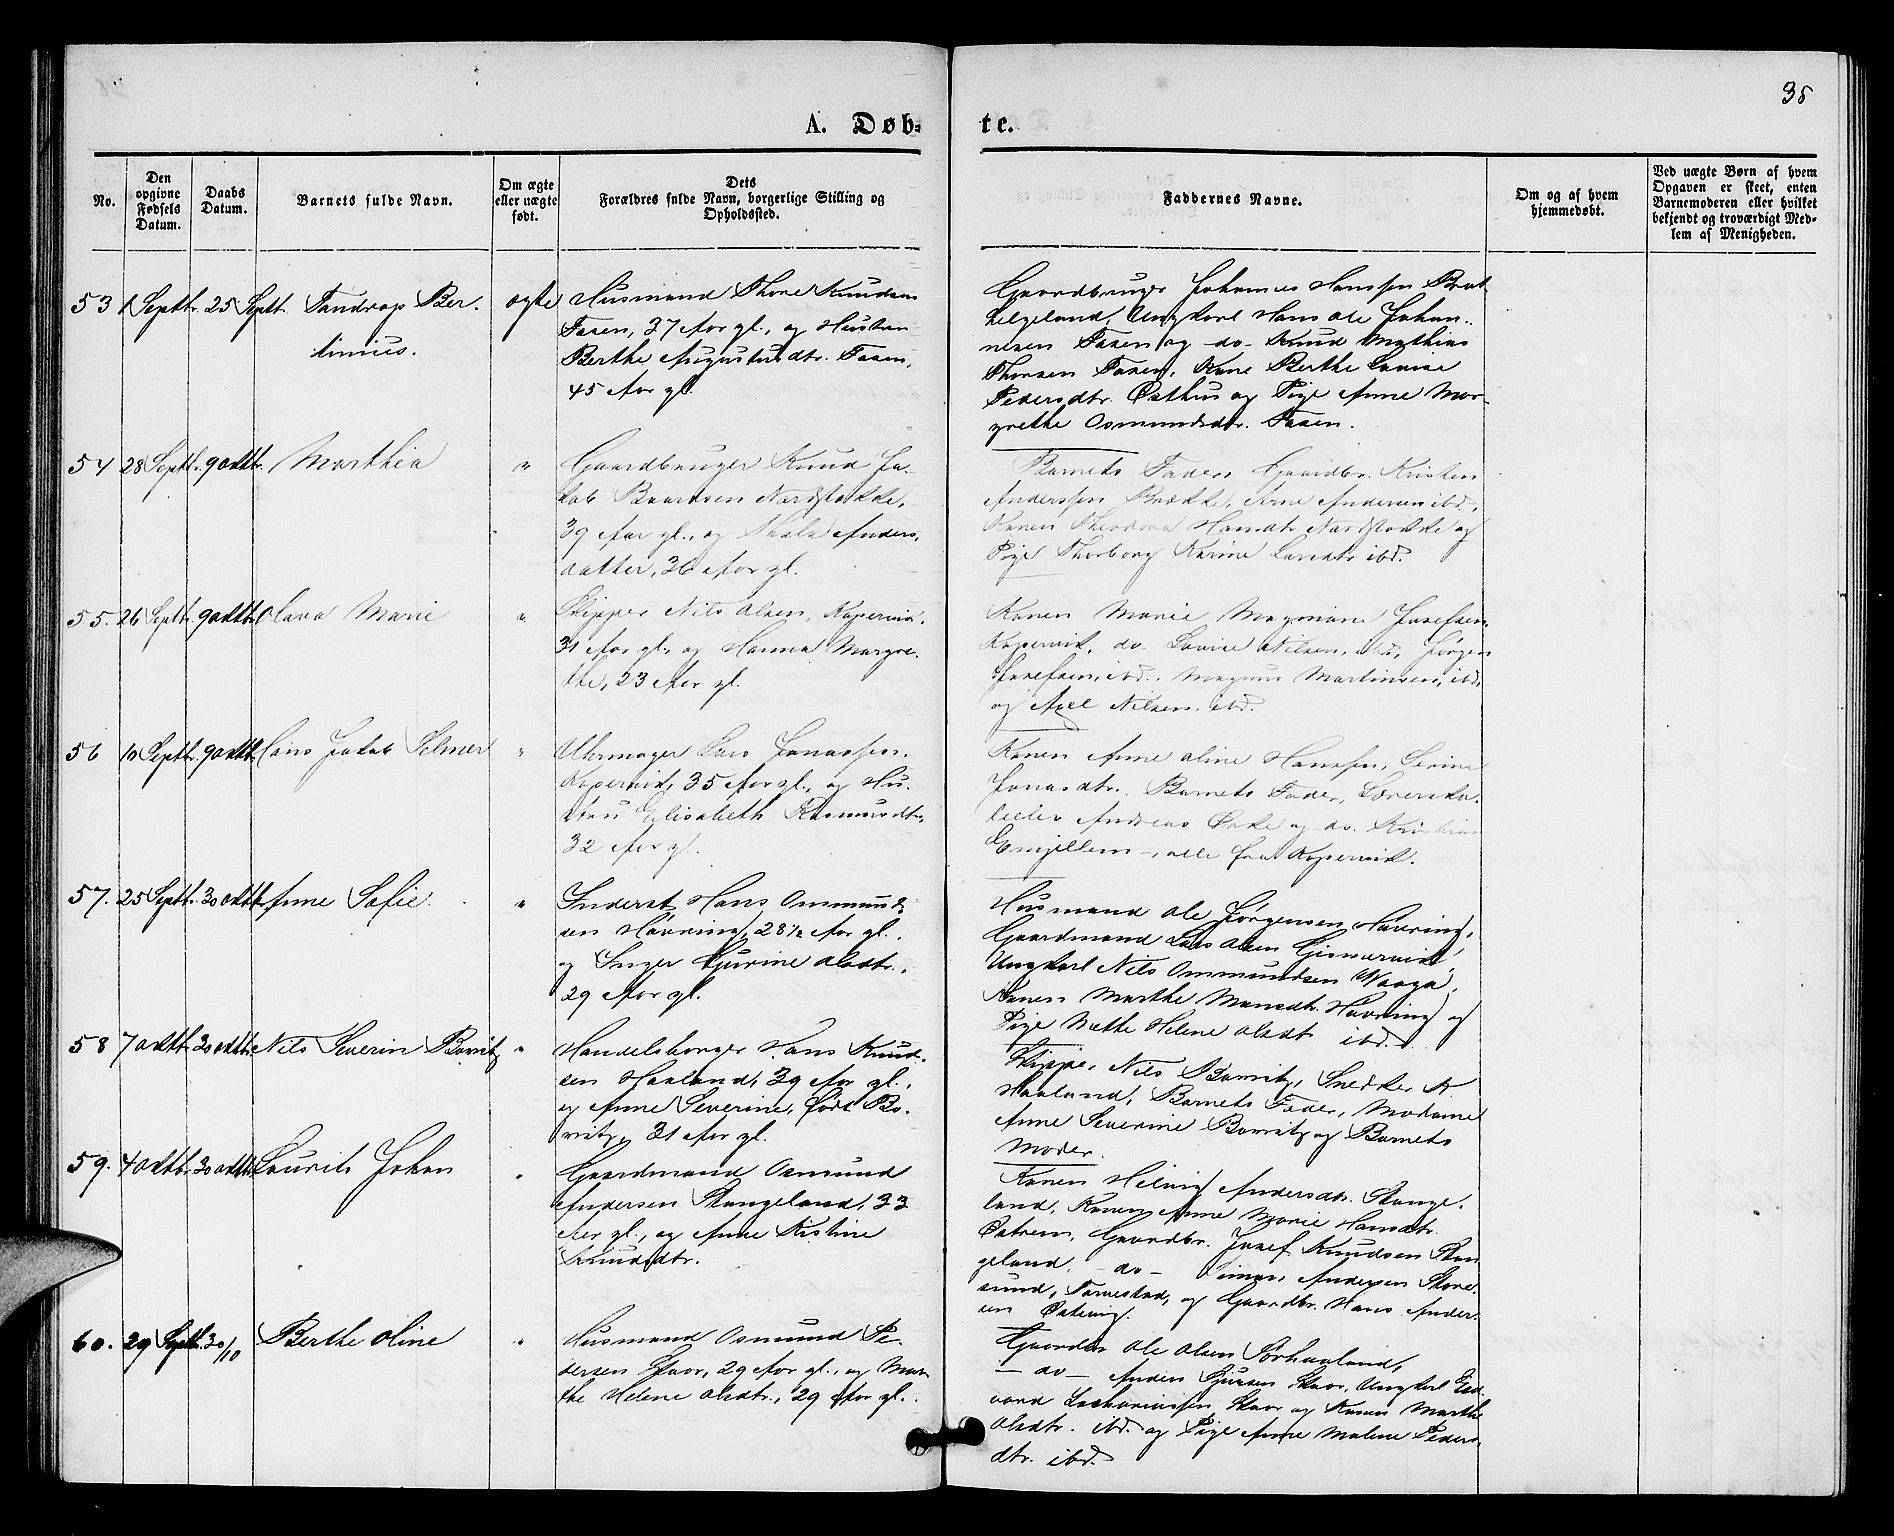 35
A. Døb-
te.
No.
Den
opgivne
Fødsels
Datum.
Daabs
Datum.
Barnets fulde Navn.
Om ægte
eller uægte
født.
Dets
Forældres fulde Navn, borgerlige Stilling og
Opholdssted.
Faddernes Navne.
Om og af hvem
hjemmedøbt.
Ved uægte Børn af hvem
Opgaven er skeet, enten
Barnemoderen eller hvilket
bekjendt og troværdigt Med-
lem af Menigheden.
53 1 Septbr. 25 Septbr. Tandrup Ber-
tinius.
ægte
Husmand Thore Knudsen
Fasen, 37 Aar gl., og Hustru
Berthe Augustinusdtr. Fasen,
45 Aar gl.
Gaardbruger Johannes Hanssen Brat-
helgeland, Ungkarl Hans Ole Johan-
nesen Fasen og do- Knud Mathias
Thorsen Fasen, Kone Berthe Lovise
Pedersdtr. Østhus og Pige Anne Mar-
grethe Osmundsdtr. Fasen.
54 28 Septbr. 9 Octbr. Marthea
"
Gaardbruger Knud Ja-
kob Baardsen Nordstokke,
39 Aar gl., og Anders-
datter, 36 Aar gl.
Barnets Fader, Gaardbr. Kristen
Anderssen Brække, Arne Andersen ibd.,
Konen Theodora Hansdtr. Nordstokke og
Pige Thorborg Karine Larsdtr. ibd.
55. 26 Septbr. 9 Octbr. Olava Marie
"
Skipper Nils Olsen, Kopervik,
31 Aar gl., og Hanna Margre-
the, 23 Aar gl.
Konen Marie Magnine Josefsen,
Kopervik, do- Lovise Nilsen, ibd., Jørgen
Josefsen, ibd., Magnus Martinsen, ibd.,
og Axel Nilsen, ibd.
56 10 Septbr. 9 Octbr. Hans Jakob Selmer
"
Uhrmager Lars Jonassen,
Kopervik, 35 Aar gl., og Hu-
stru Elisabeth Rasmusdtr.,
32 Aar gl.
Konen Anne Oline Hanssen, Serine
Jonasdtr., Barnets Fader, Lærersko-
leelev Andreas og do. Kristian
alle fra Kopervik.
57. 25 Septbr. 30 Octbr. Anne Sofie.
"
Inderst Hans Ommund-
sen Høvring, 28½ Aar gl.,
og Inger Gjurine Olsdtr.,
29 Aar gl.
Husmand Ole Jørgensen Høvring,
Gaardmand Lars Olsen Gismervik,
Ungkarl Nils Ommundsen Waaga,
Konen Marthe Monsdtr. Høvring og
Pige Mette Helene Olsdtr. ibd.
58 7 Octbr. 30 Octbr. Nils Severin Borvitz
"
Handelsborger Hans Knud-
sen Haaland, 39 Aar gl.,
og Anne Severine, født Bo-
rvitz, 31 Aar gl.
Skipper Nils Borvitz, Snedker K.
Haaland, Barnets Fader, Madame
Anne Severine Borvitz og Barnets
Moder.
59. 4 Octbr. 30 Octbr. Laurits Johan
"
Gaardmand Osmund
Andersen Stangeland, 33
Aar gl., og Anne Kistine
Knudsdtr.
Konen Helvig Andersdtr. Stange-
land, Konen Anne Marie Hansdtr.
Østrem, Gaardbr. Josef Knudsen Stan-
geland, - do - Simon Andersen Store-
sund, Tornestad, og Gaardbr. Hans Ander-
sen
60. 29 Septbr. 30/10 Berthe Oline
"
Husmand Osmund Pe-
dersen Skaar, 29 Aar gl., og Mar-
the Helene Olsdtr., 29 Aar gl.
Gaardbr Ole Olsen Sørhaaland,
- do - Anders Sjursen Skaar, Ungkarl Ed-
vard Zachariassen Skaar og Konen Marthe
Olsdtr. ibd. og Pige Anne Malene Peders-
dtr. ibd.